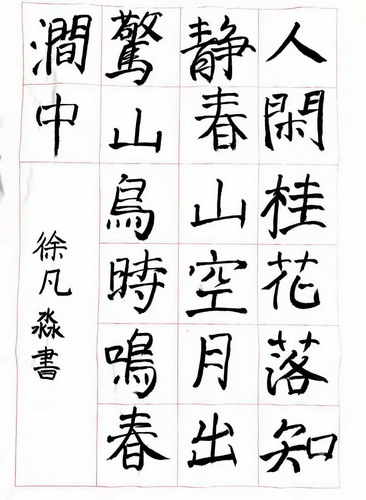 人閑桂花落知
静春山空月出
驚山鳥時鳴春
澗中
徐凡淼書